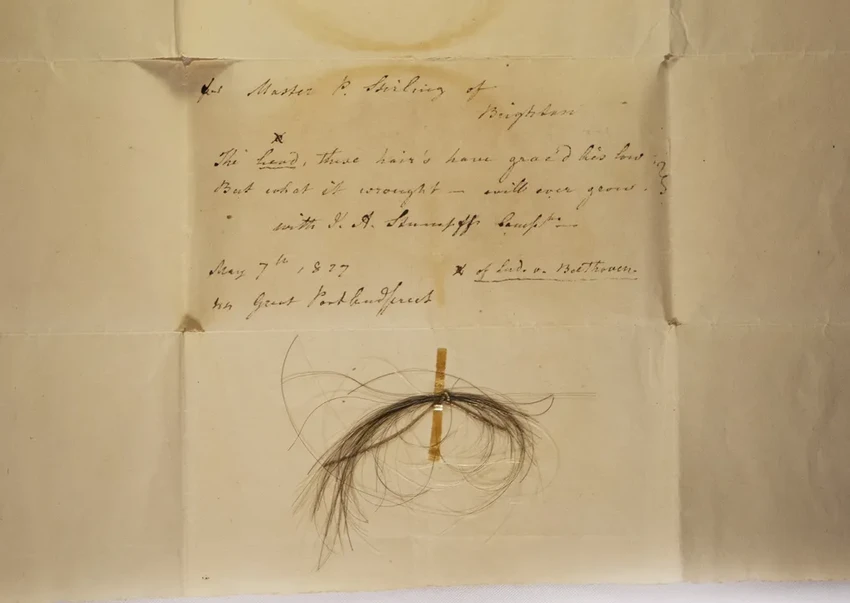 for Master P. Stirling of
Brighton
x
The head, these hair's have grac'd lies low
But what it wrought – will ever grow.
with J. A. Stumpff Compts –
May 7th, 1827
x of Lud. v. Beethoven.
44 Great Portland Street